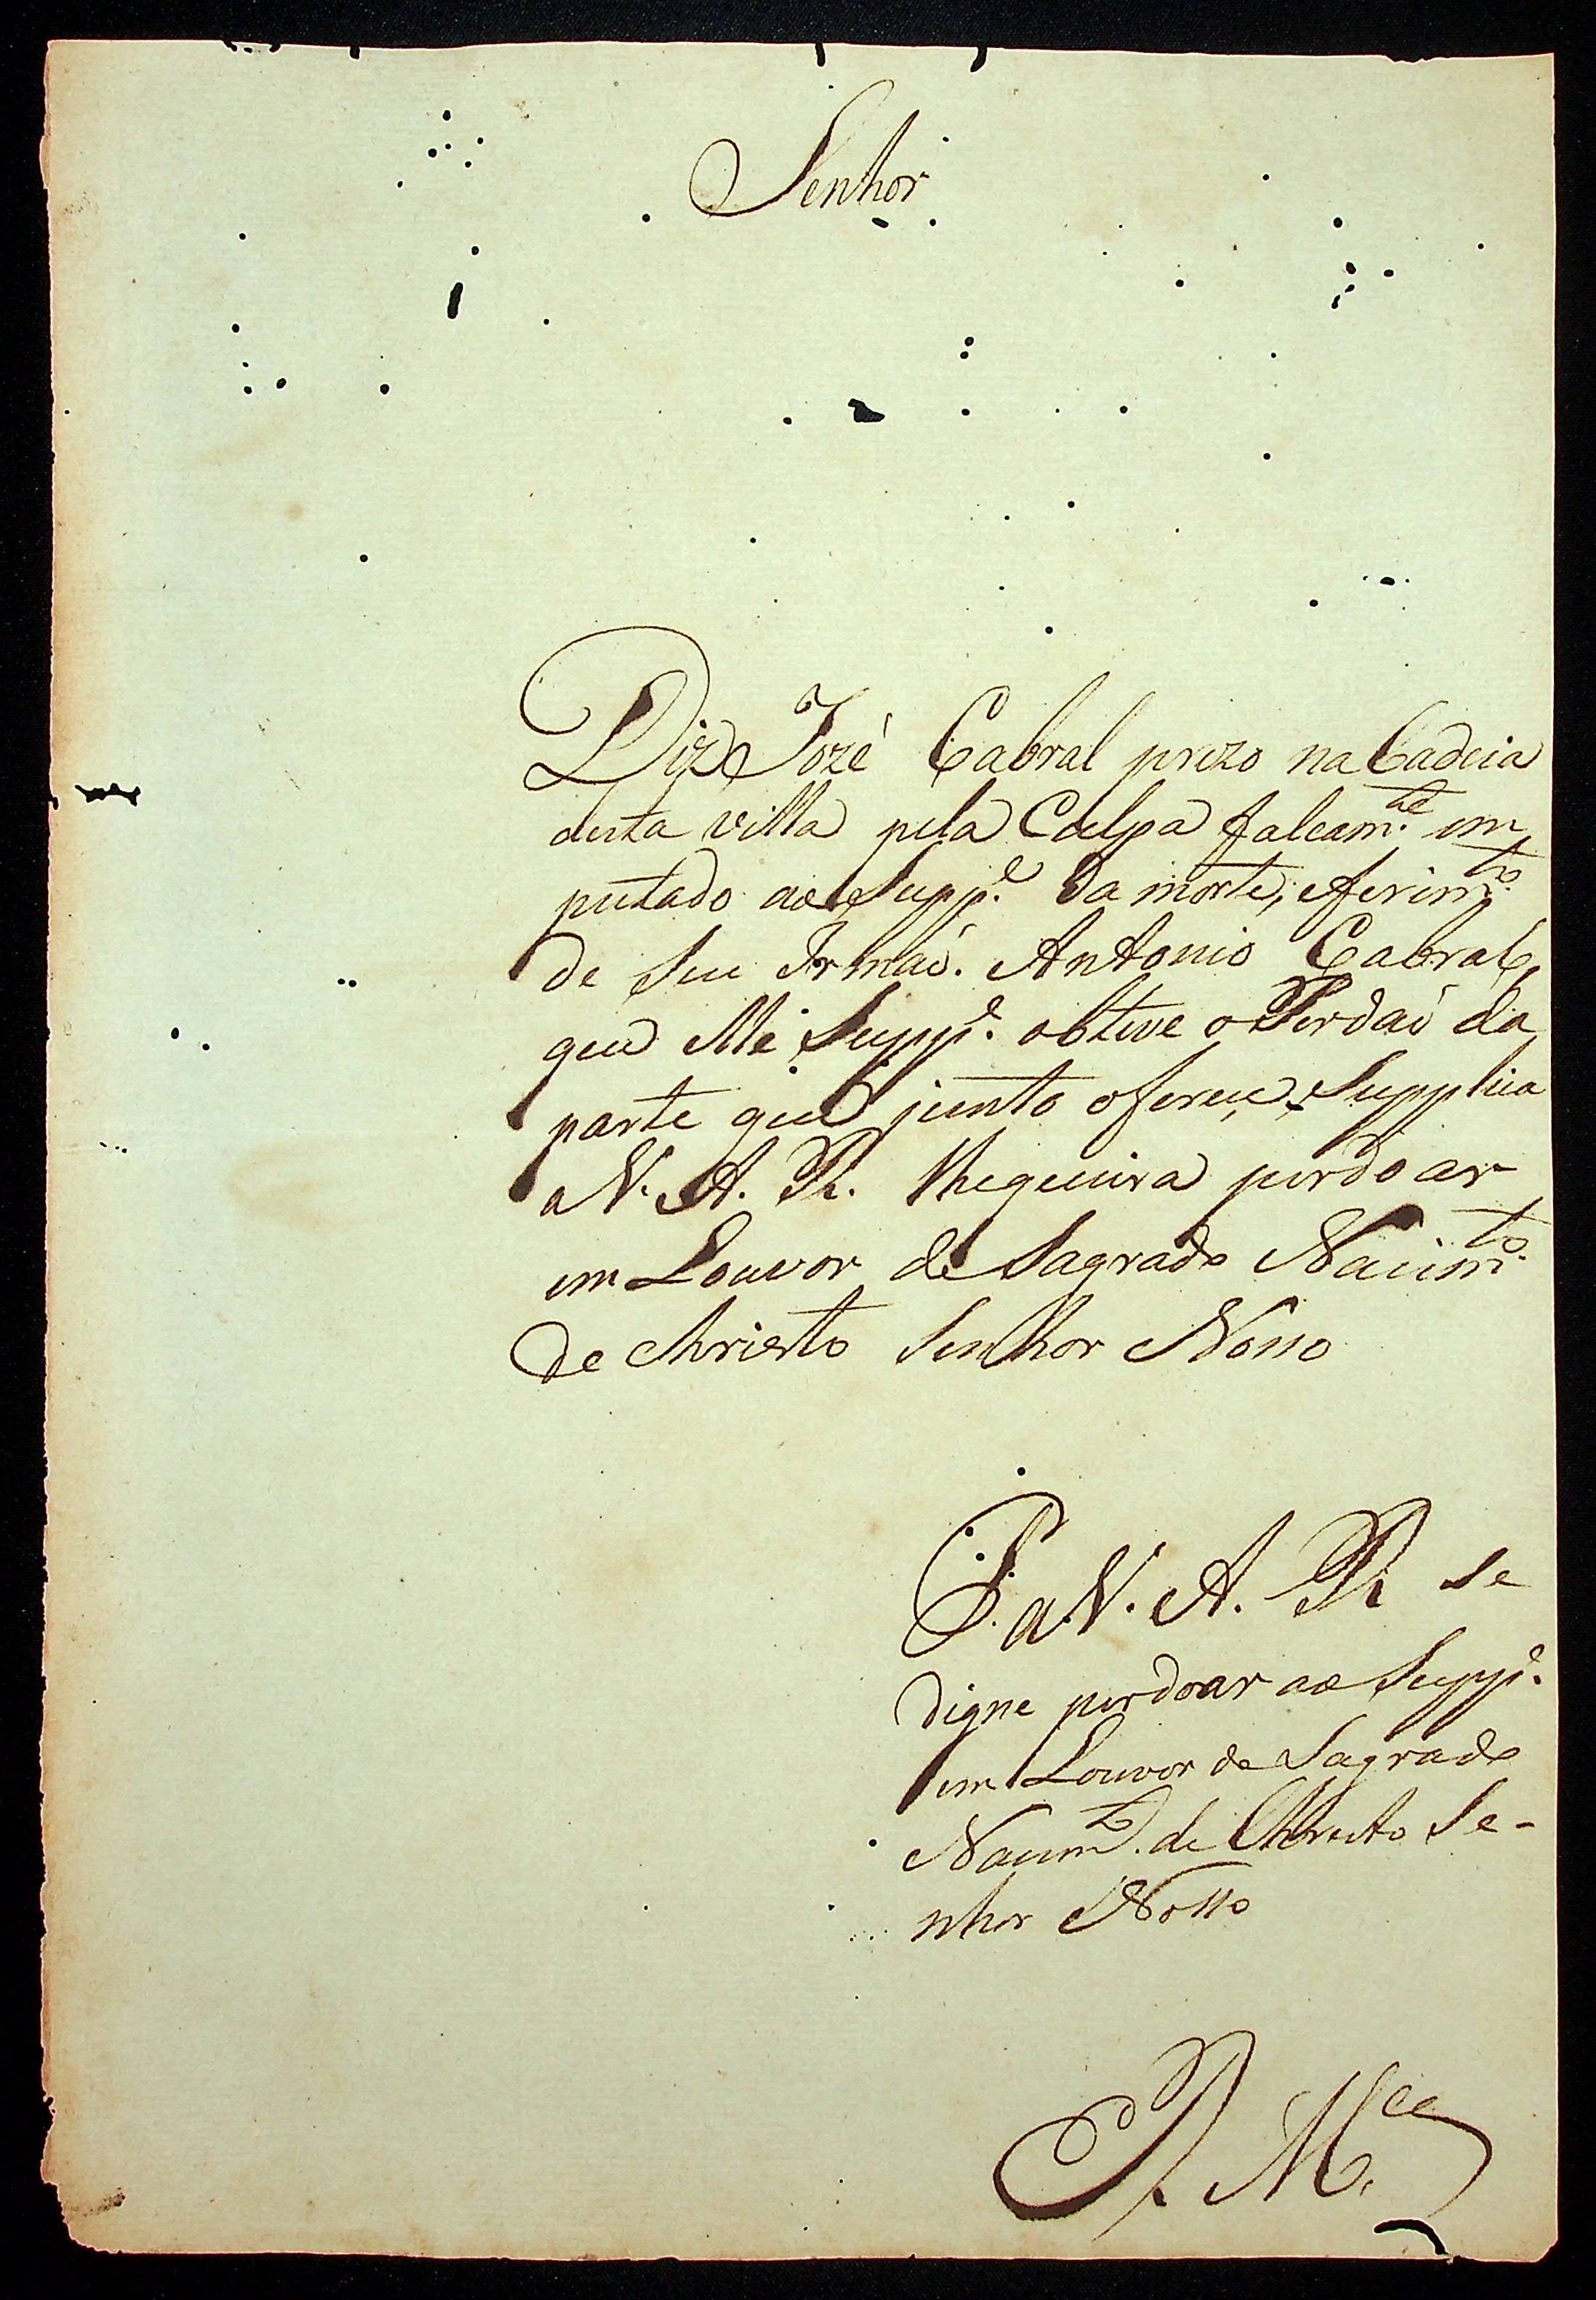 Senhor
Diz Jozé Cabral prezo na Cadeia
desta villa pela Culpa falcam.te im
putado ao Supp.e da morte, e ferim.to
de seu Irmaõ. Antonio Cabral, e
que elle Supp.e obteve o Perdaõ da
parte que junto oferece, Supplica
a V. A. R. lhe queira perdoar
em Louvor do Sagrado Nacim.to
de Christo Senhor Nosso
P. a V. A. R se
digne perdoar ao Supp.e
em Louvor do Sagrado
Nacim.to de Christo Se-
nhor Nosso
E. R. M.ce